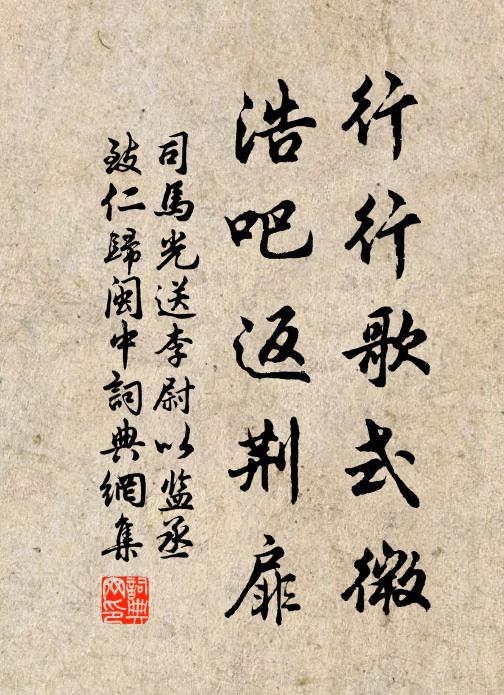 行行歌式微
浩吧返荆扉
司馬光送李尉以监丞
致仁歸闽中詞典網集
詞典网印